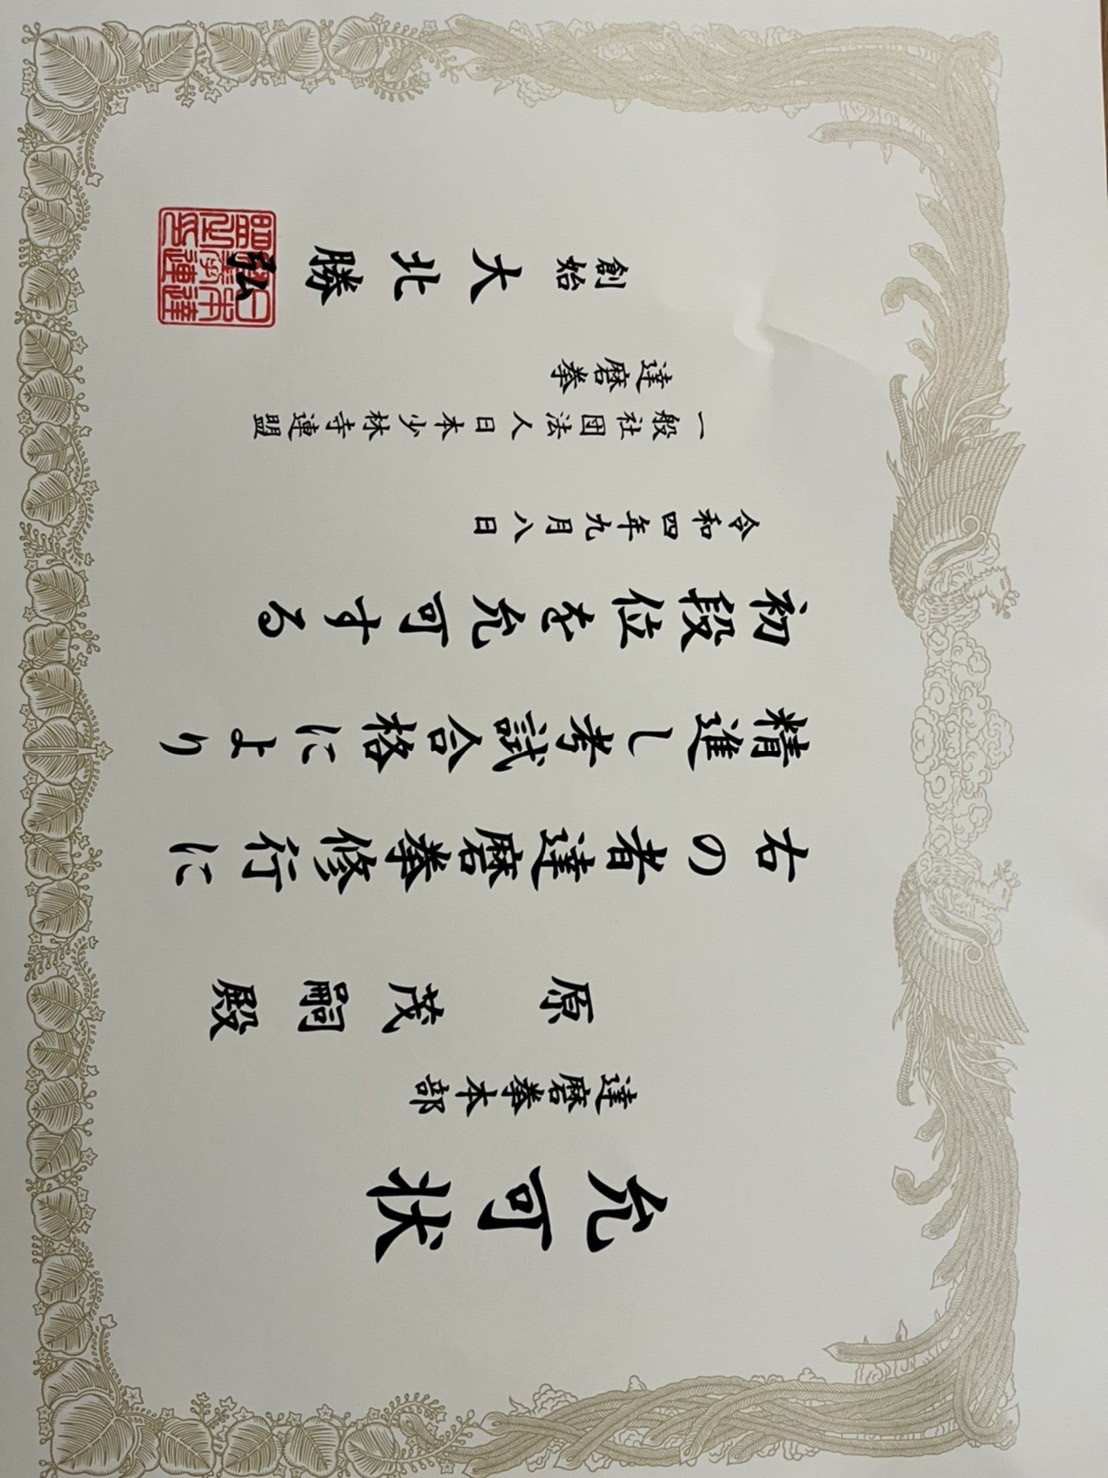 允可状
達磨拳本部
原 茂嗣殿
右の者達磨拳修行に
精進し考試合格により
初段位を允可する
令和四年九月八日
一般社団法人日本少林寺連盟
達磨拳
創始 大北勝弘